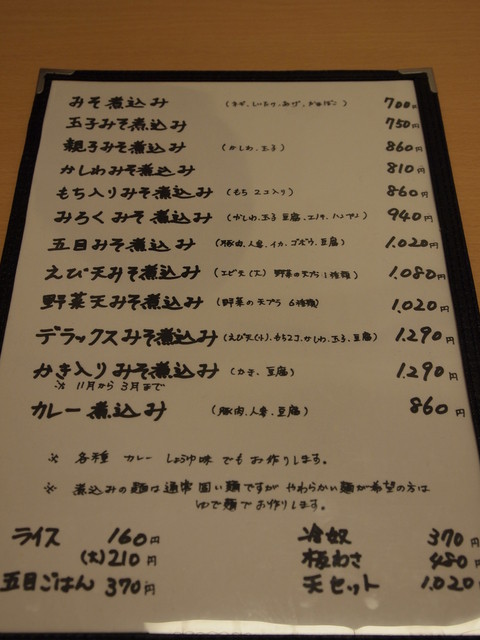 みそ煮込み (ネギ、しいたけ、あげ、かまぼこ) 700円
玉子みそ煮込み 750円
親子みそ煮込み (かしわ、玉子) 860円
かしわみそ煮込み 810円
もち入りみそ煮込み (もち 2コ入り) 860円
みろくみそ煮込み (かしわ、玉子、豆腐、エノキ、ハンペン) 940円
五目みそ煮込み (豚肉、人参、イカ、ゴボウ、豆腐) 1,020円
えび天みそ煮込み (エビ天(大) 野菜の天プラ 1種類) 1,080円
野菜天みそ煮込み (野菜の天プラ 6種類) 1,020円
デラックスみそ煮込み (えび天(小)、もち2コ、かしわ、玉子、豆腐) 1,290円
かき入りみそ煮込み (かき、豆腐) 1,290円
※ 11月から3月まで
カレー煮込み (豚肉、人参、豆腐) 860円
※ 各種 カレー しょうゆ味 でもお作りします。
※ 煮込みの麺は通常 固い麺ですが やわらかい麺が希望の方は
ゆで麺でお作りします。
ライス 160円
(大)210円
五目ごはん 370円
冷奴 370円
板わさ 480円
天セット 1,020円